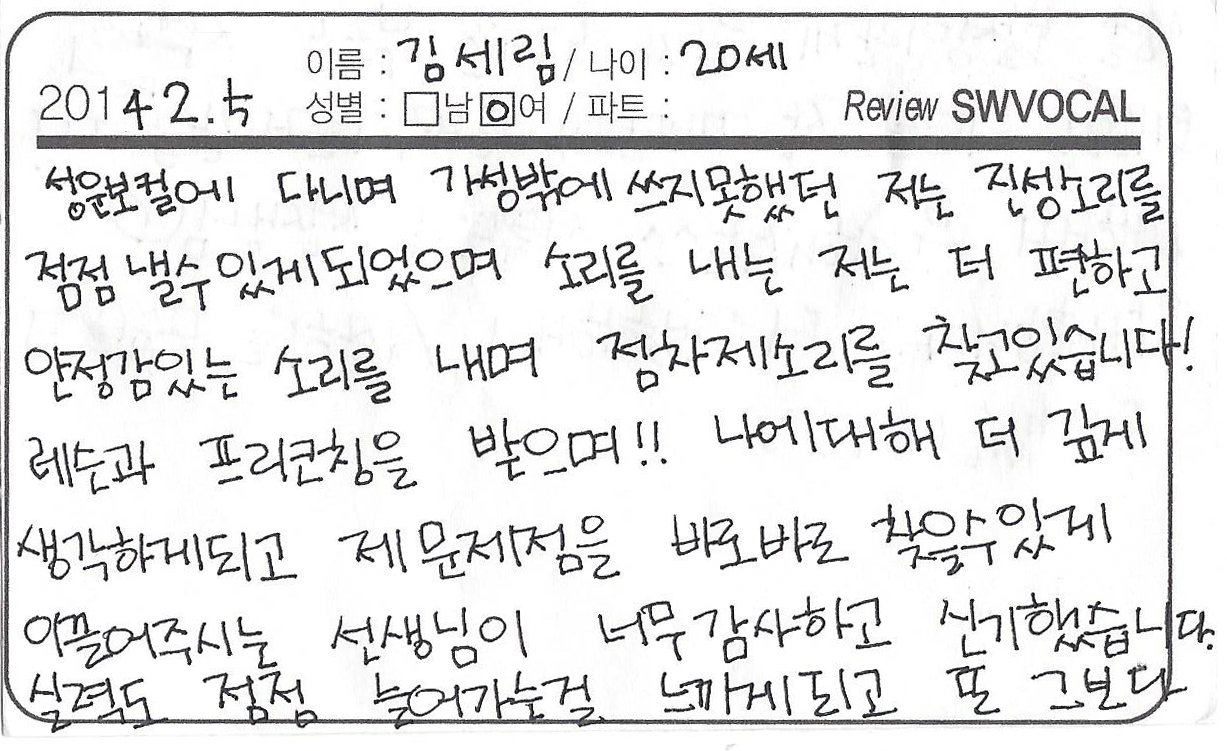 이름 : 김세림 / 나이 : 20세
2014 2.5 성별 : □남 ☑여 / 파트 : Review SWVOCAL
성운보컬에 다니며 가성밖에 쓰지못했던 저는 진성소리를
점점 낼수있게되었으며 소리를 내는 저는 더 편하고
안정감있는 소리를 내며 점차제소리를 찾고있습니다!
레슨과 프리코칭을 받으며!! 나에대해 더 깊게
생각하게되고 제문제점을 바로바로 찾을수있게
이끌어주시는 선생님이 너무감사하고 신기했습니다.
실력도 점점 늘어가는걸 느끼게되고 또 그보다